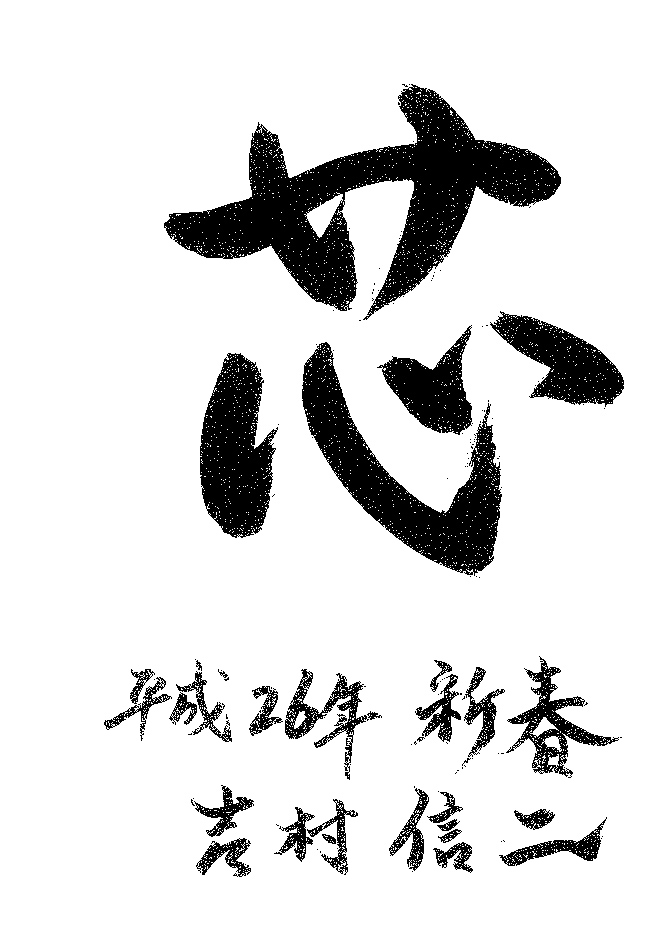 芯
平成26年 新春
吉村 信二